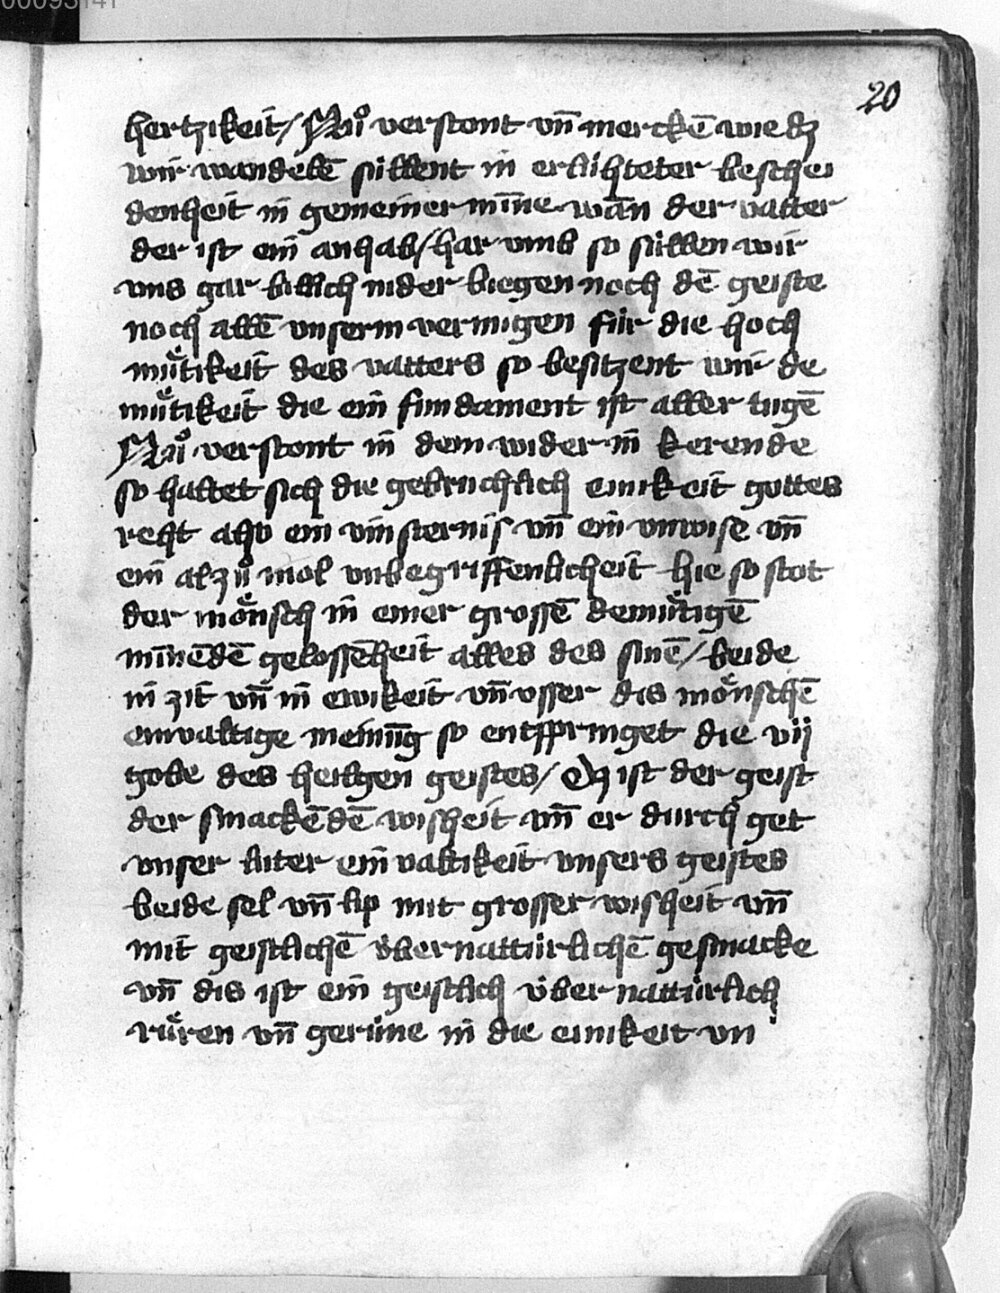 00093141
20
hertzikeit / Nuͦ verstont vn̄ merckē wie dz
wir wandelē súllent in erlúhteter beschei
denheit in gemeiner mīne wan der vatter
der ist ein anhab / har vmb so súllen wir
vns gar billich nider biegen noch dē geiste
noch allē vnserm vermúgen fúr die hoch
muͤtikeit des vatters so besitzent wir de
muͤtikeit die ein fundament ist aller tugē
Nuͦ verstont in dem wider in kerende
so haltet sich die gebruchlich einikeit gottes
reht also ein vinsternis vn̄ ein vnwise vn̄
ein alzuͦ mol vnbegriffenlicheit hie so stot
der moͤnsch in einer grossē demuͤtigē
mīnēdē gelossēheit alles des sinē / beide
in zit vn̄ in ewikeit vn̄ vsser dis moͤnschē
einvaltige meinūg so entspringet die vij
gobe des heilgen geistes / Dz ist der geist
der smackēdē wisheit vn̄ er durch get
vnser luter ein valtikeit vnsers geistes
beide sel vn̄ lip mit grosser wisheit vn̄
mit geistlichē v́bernattúrlichē gesmacke
vn̄ dis ist ein geistlich v́ber nattúrlich
ruͤren vn̄ gerúne in die einikeit vn